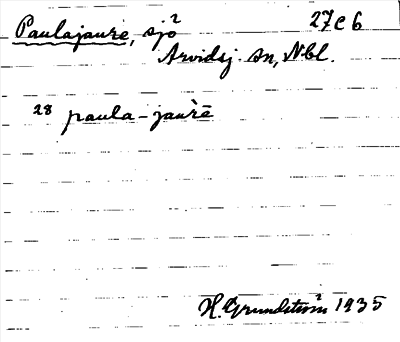 Paulajaure, sjö² 27 C 6
Arvidsj. sn, Nbl.
28 paula-jaurē
H. Grundström 1935